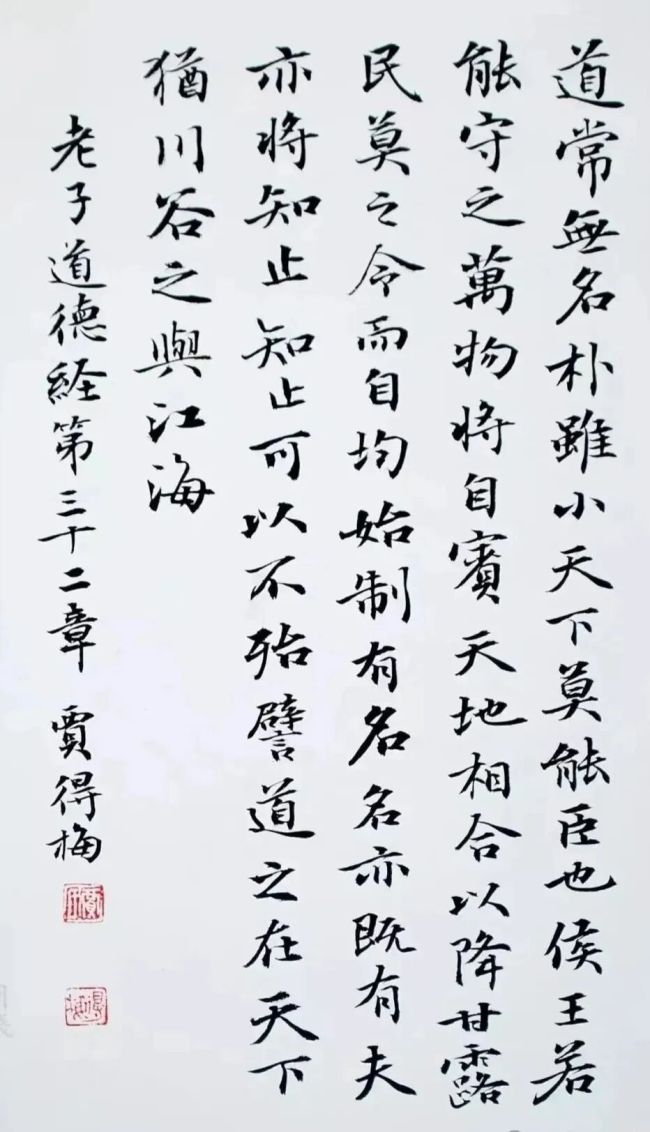 道常無名朴雖小天下莫能臣也侯王若
能守之萬物将自賓天地相合以降甘露
民莫之令而自均始制有名名亦既有夫
亦将知止知止可以不殆譬道之在天下
猶川谷之與江海
老子道德経第三十二章 賈得梅